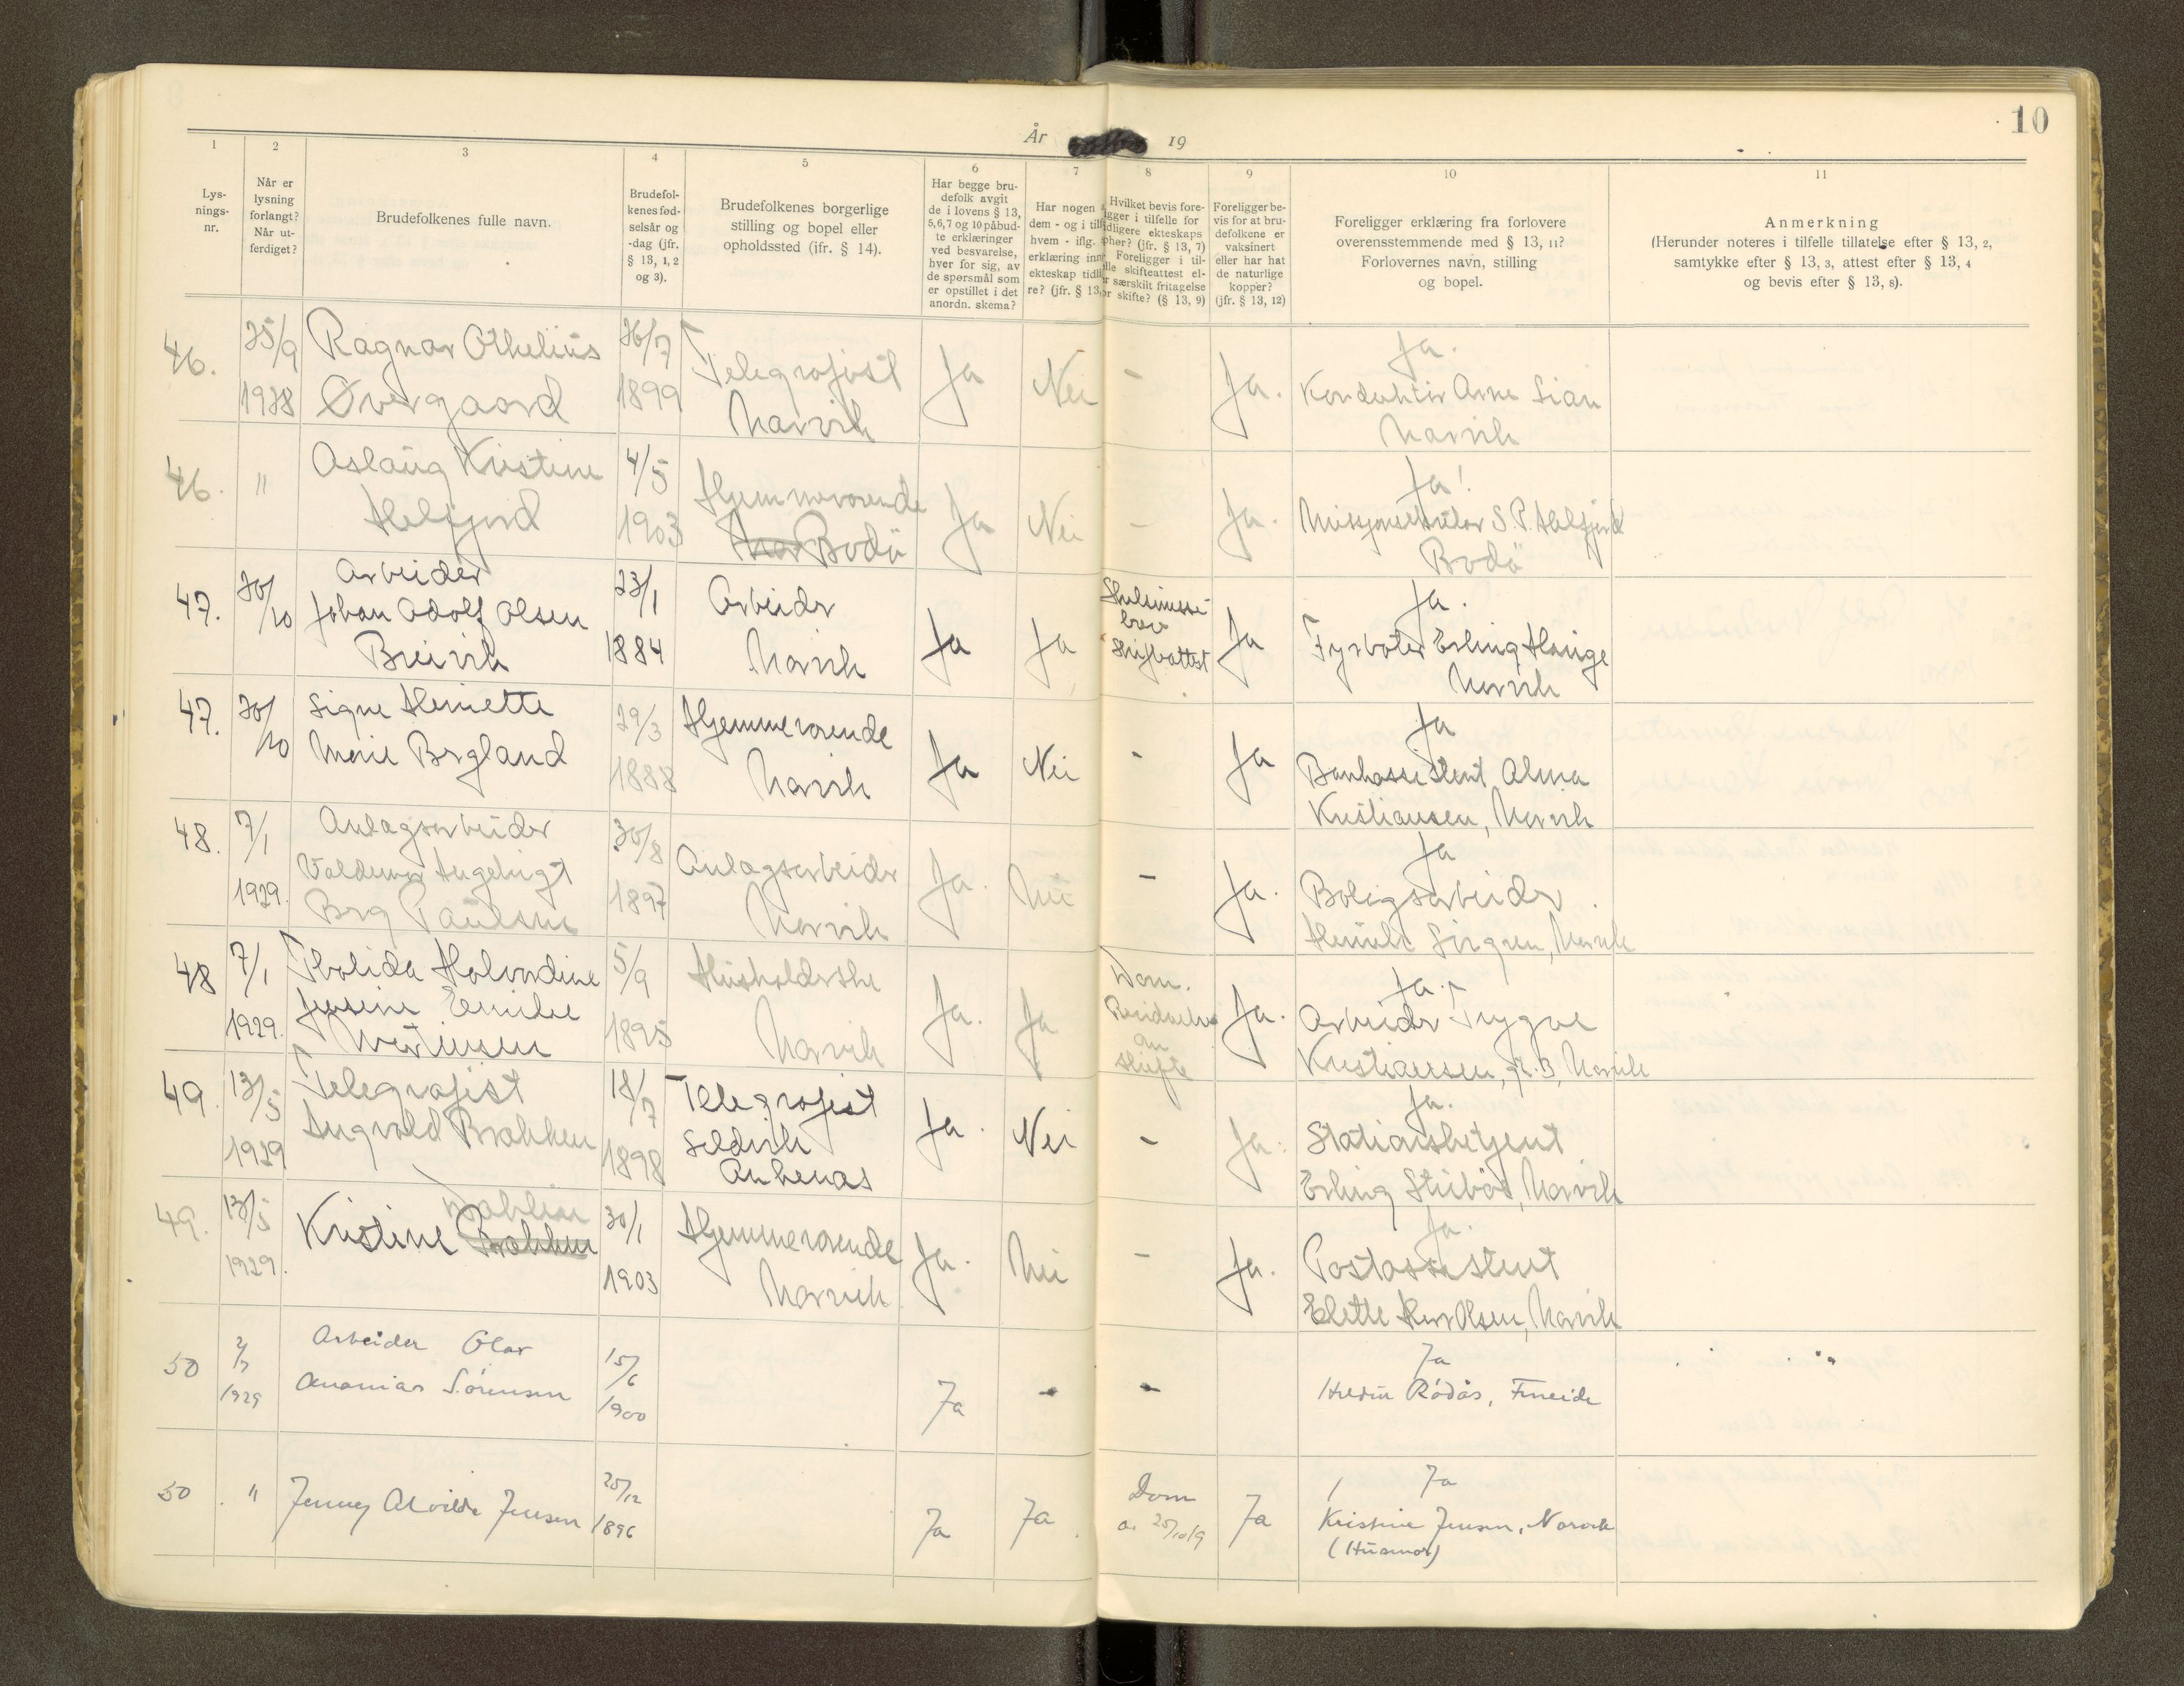 10
År 19
1 2 3 4 5 6 7 8 9 10 11
Lys-
nings-
nr.
Når er
lysning
forlangt?
Når ut-
ferdiget?
Brudefolkenes fulle navn.
Brudefol-
kenes fød-
selsår og
-dag (jfr.
§ 13, 1, 2
og 3).
Brudefolkenes borgerlige
stilling og bopel eller
opholdssted (jfr. § 14).
Har begge bru-
defolk avgit
de i lovens § 13,
5,6,7 og 10 påbud-
te erklæringer
ved besvarelse,
hver for sig, av
de spørsmål som
er opstillet i det
anordn. skema?
Har nogen a
dem - og i tilf
hvem - iflg.
erklæring inn
ekteskap tidli
re? (jfr. § 13,
Hvilket bevis fore-
igger i tilfelle for
idligere ekteskaps
phør? (jfr. § 13, 7)
Foreligger i til-
lle skifteattest el-
r særskilt fritagelse
or skifte? (§ 13, 9)
Foreligger be-
vis for at bru-
defolkene er
vaksinert
eller har hat
de naturlige
kopper?
(jfr. § 13, 12)
Foreligger erklæring fra forlovere
overensstemmende med § 13, 11?
Forlovernes navn, stilling
og bopel.
Anmerkning
(Herunder noteres i tilfelle tillatelse efter § 13, 2,
samtykke efter § 13, 3, attest efter § 13, 4
og bevis efter § 13, 8).
46.
25/9
1928
Ragnar Othelius
Overgaard
26/7
1899
Telegrafist
Narvik
Ja
Nei
-
Ja.
Ja.
Konduktör Arne
Narvik
46.
"
Aslaug Kristine
Helfjord
4/5
1903
Hjemmeværende
Bodö
Ja
Nei
-
Ja.
Ja!
S. P. Helfjord
Bodö
47.
20/10
Arbeider
Johan Adolf Olsen
Breivik
23/1
1884
Arbeider
Narvik
Ja
Ja
Skilsmisse-
brev
Skifteattest
Ja
Ja.
Fyrböter Erling Hauge
Narvik
47.
20/10
Signe Henriette
Marie Bergland
29/3
1888
Hjemmeværende
Narvik
Ja
Nei
-
Ja
Ja
Bankassistent Alma
Kristiansen, Narvik
48.
7/1
1929.
Anlægsarbeider
Valdemar Ingebrigt
Berg Paulsen
30/8
1897
Anlægsarbeider
Narvik
Ja.
Nei
-
Ja.
Ja
Boligsarbeider
Henrik Narvik
48
7/1
1929.
Halvordine
Jensine Emilie
Mortensen
5/9
1895
Husholderske
Narvik
Ja.
Ja
Dom.
om
skifte
Ja.
Ja.
Arbeider Trygve
Kristiansen, Narvik
49.
13/5
1929
Telegrafist
Ingvald Brækken
18/7
1898
Telegrafist
Seldvik
Ankenes
Ja.
Nei
-
Ja.
Ja.
Stationsbetjent
Erling Narvik
49.
13/5
1929.
Dahlin
Kristine Brækken
30/1
1903
Hjemmeværende
Narvik
Ja.
Nei
-
Ja.
Ja.
Postassistent
Elette Narvik
50
2/7
1929
Arbeider Olav
Ananias Sörensen
15/6
1900
Ja
-
-
Ja
Rödås, Fineide
50
"
Jenny Alvilde Jensen
25/12
1896
Ja
Ja.
Dom
a. 25/10/9
Ja
Ja
Kristine Jensen, Narvik
(Husmor)